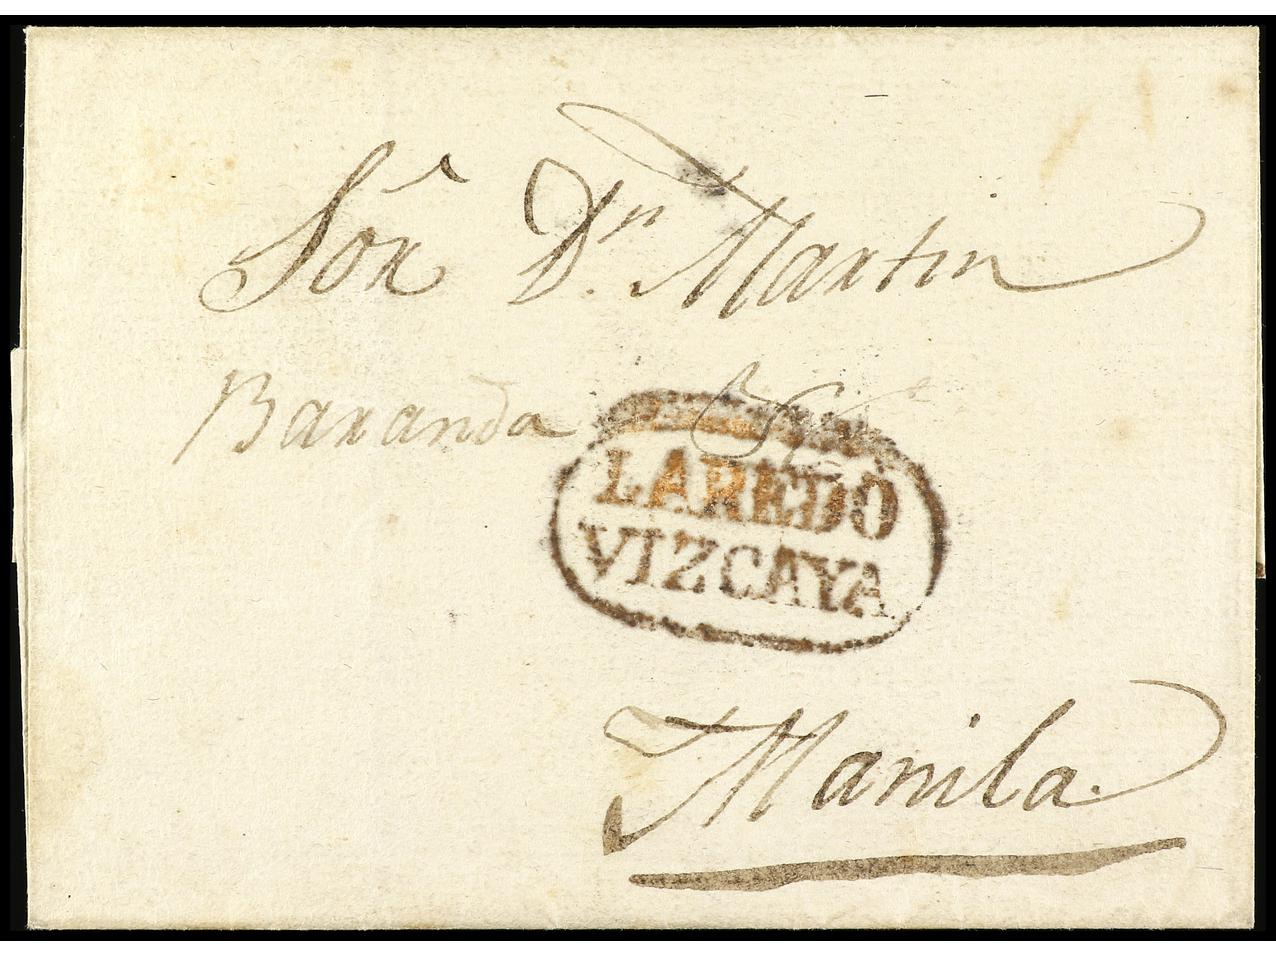 Sor Dn. Martin
Baranda
LAREDO
VIZCAYA
Manila.